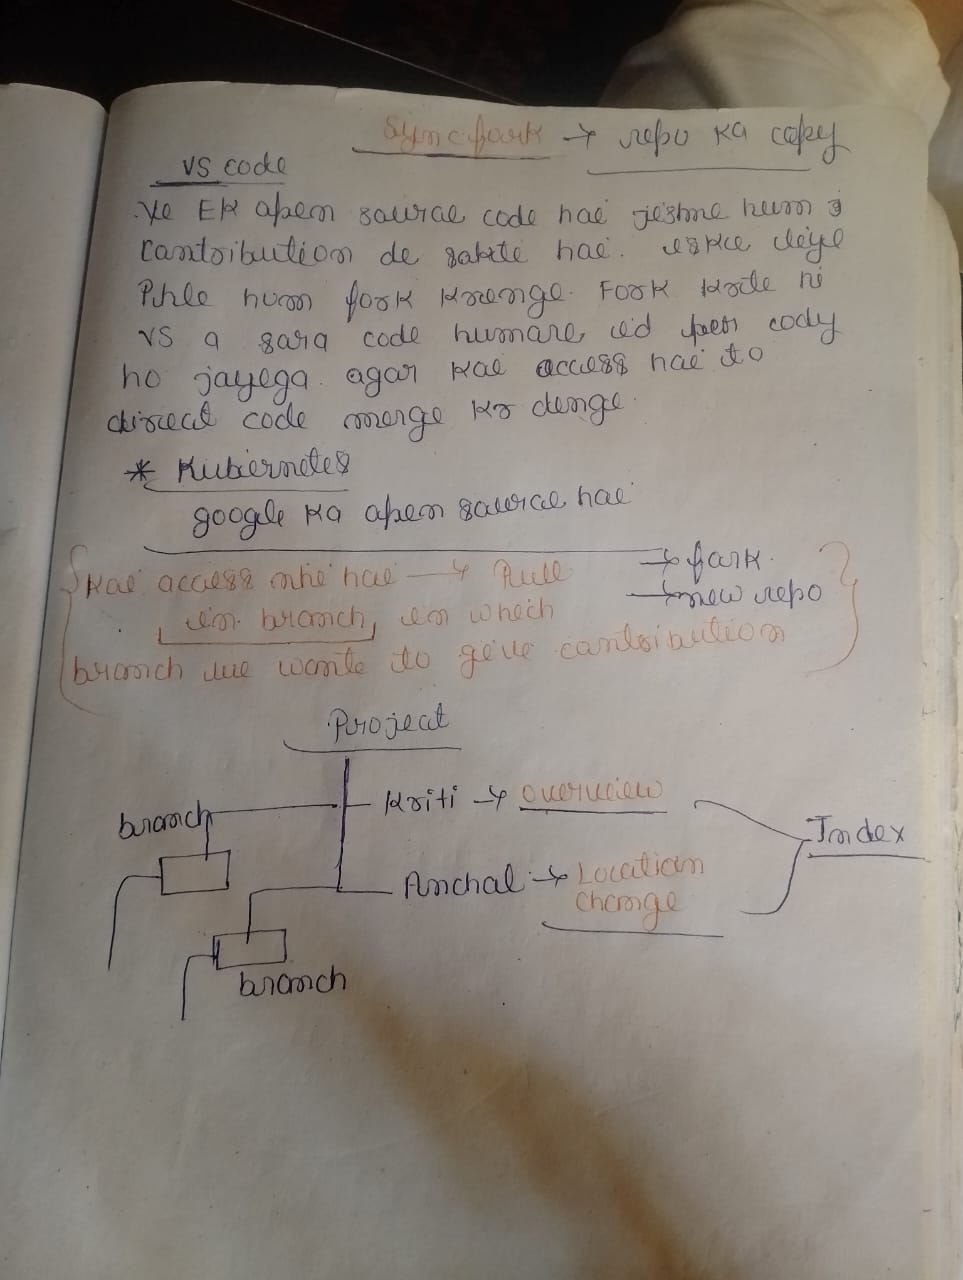 Sync fork → repo ka copy
VS code
Ye Ek open source code hai jisme hum
contribution de sakte hai. iske liye
Phle hum fork krenge. Fork krte hi
VS a sara code humare id per copy
ho jayega. agar kae access hae to
direct code merge kr denge.
* Kubernetes
google ka open source hai
→ fork.
kae access nhi hai → Pull
→ new repo
in branch, in which
branch we wante to give contribution
Project
Kriti → overview
branch
Index
Anchal → Location
change
branch